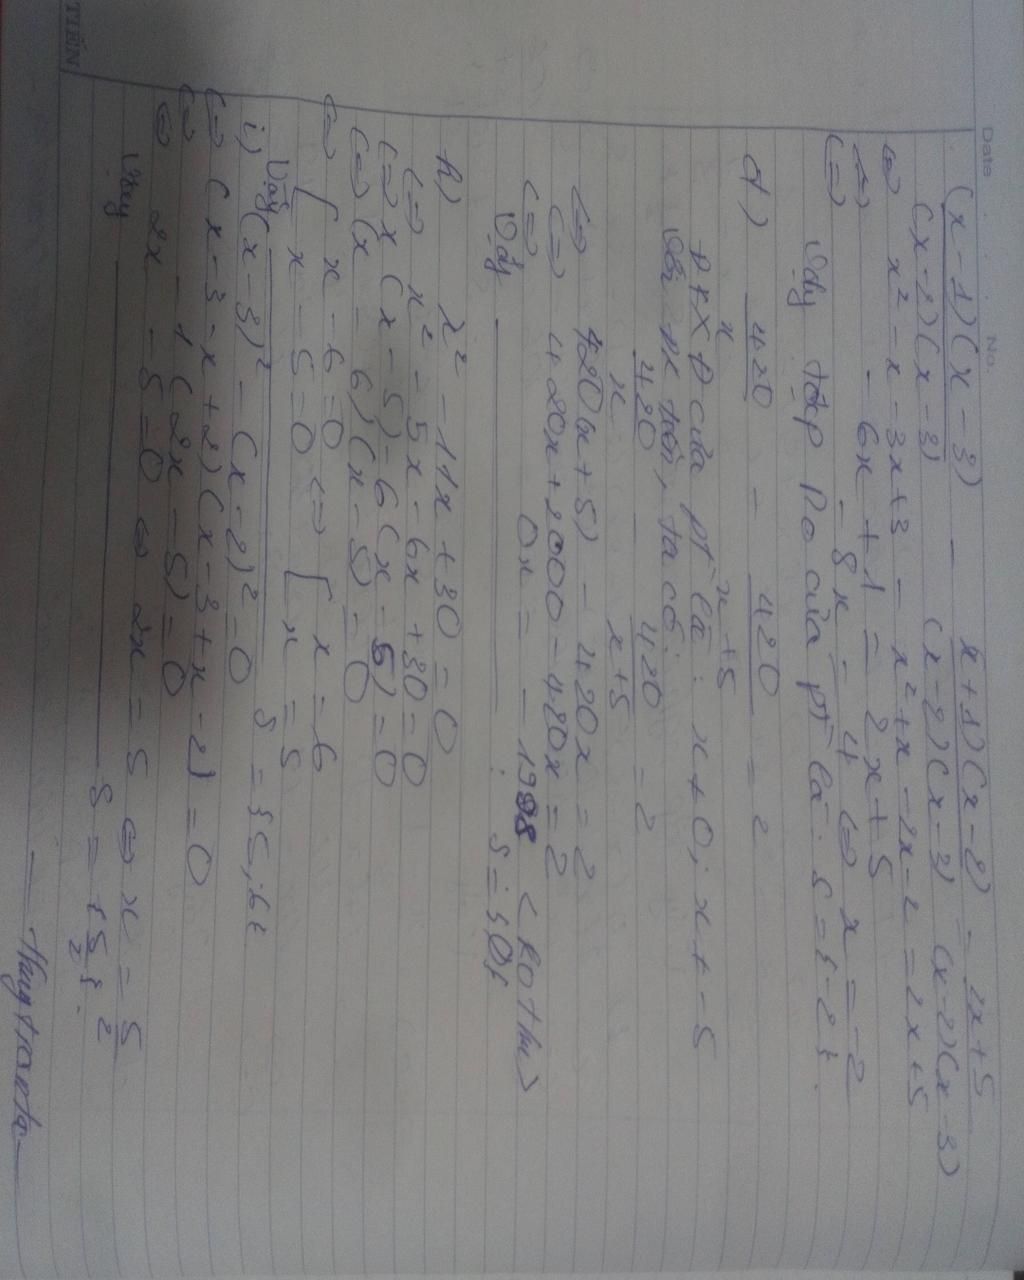 Date No.
(x-1)(x-3) - (x+1)(x-2) = 2x+5
(x-2)(x-3) (x-2)(x-3) (x-2)(x-3)
<=> x² - x - 3x + 3 - x² + x - 2x - 2 = 2x + 5
<=> - 6x + 1 = 2x + 5
<=> - 8x = 4 <=> x = -2
Vậy tập no của pt là: S = {-2}.
d) 420 - 420 = 2
x x+5
ĐKXĐ của pt là: x ≠ 0; x ≠ -5
Với ĐK trên, ta có:
420 - 420 = 2
x x+5
<=> 420(x+5) - 420x = 2
<=> 420x + 2000 - 420x = 2
<=> 0x = - 1998 <Ko tm>
Vậy S = {0}
h) x² - 11x + 30 = 0
<=> x² - 5x - 6x + 30 = 0
<=> x(x-5) - 6(x-5) = 0
<=> (x-6)(x-5) = 0
<=> [ x-6=0 <=> [ x=6
x-5=0 x=5
Vậy S = {5;6}
i) (x-3)² - (x-2)² = 0
<=> (x-3-x+2)(x-3+x-2) = 0
<=> -1(2x-5) = 0
<=> 2x-5=0 <=> 2x=5 <=> x = 5
2
Vậy S = {5}.
2
TIẾN